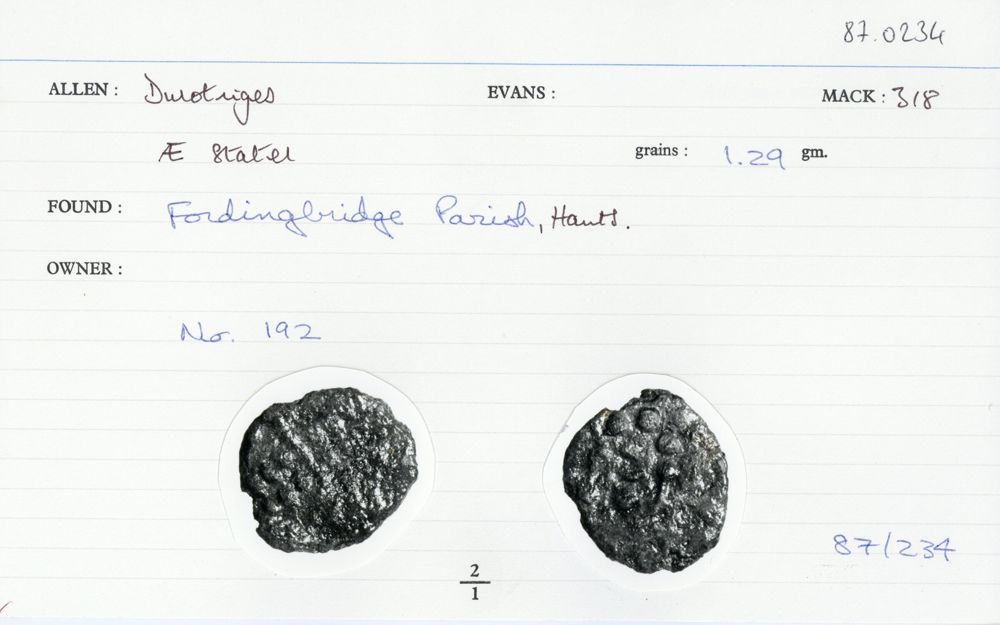 87.0234
ALLEN : Durotriges EVANS : MACK : 318
Æ Stater grains : 1.29 gm.
FOUND : Fordingbridge Parish, Hants.
OWNER :
No. 192
87/234
2
1